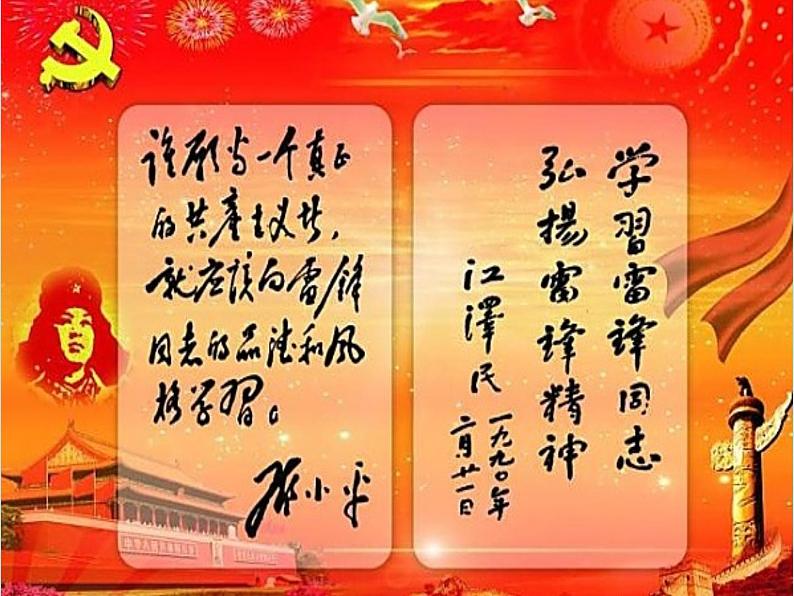 谁愿当一个真正
的共产主义者，
就应该向雷锋
同志的品德和风
格学习。
邓小平
学習雷锋同志
弘揚雷锋精神
江澤民
一九九〇年
二月廿一日